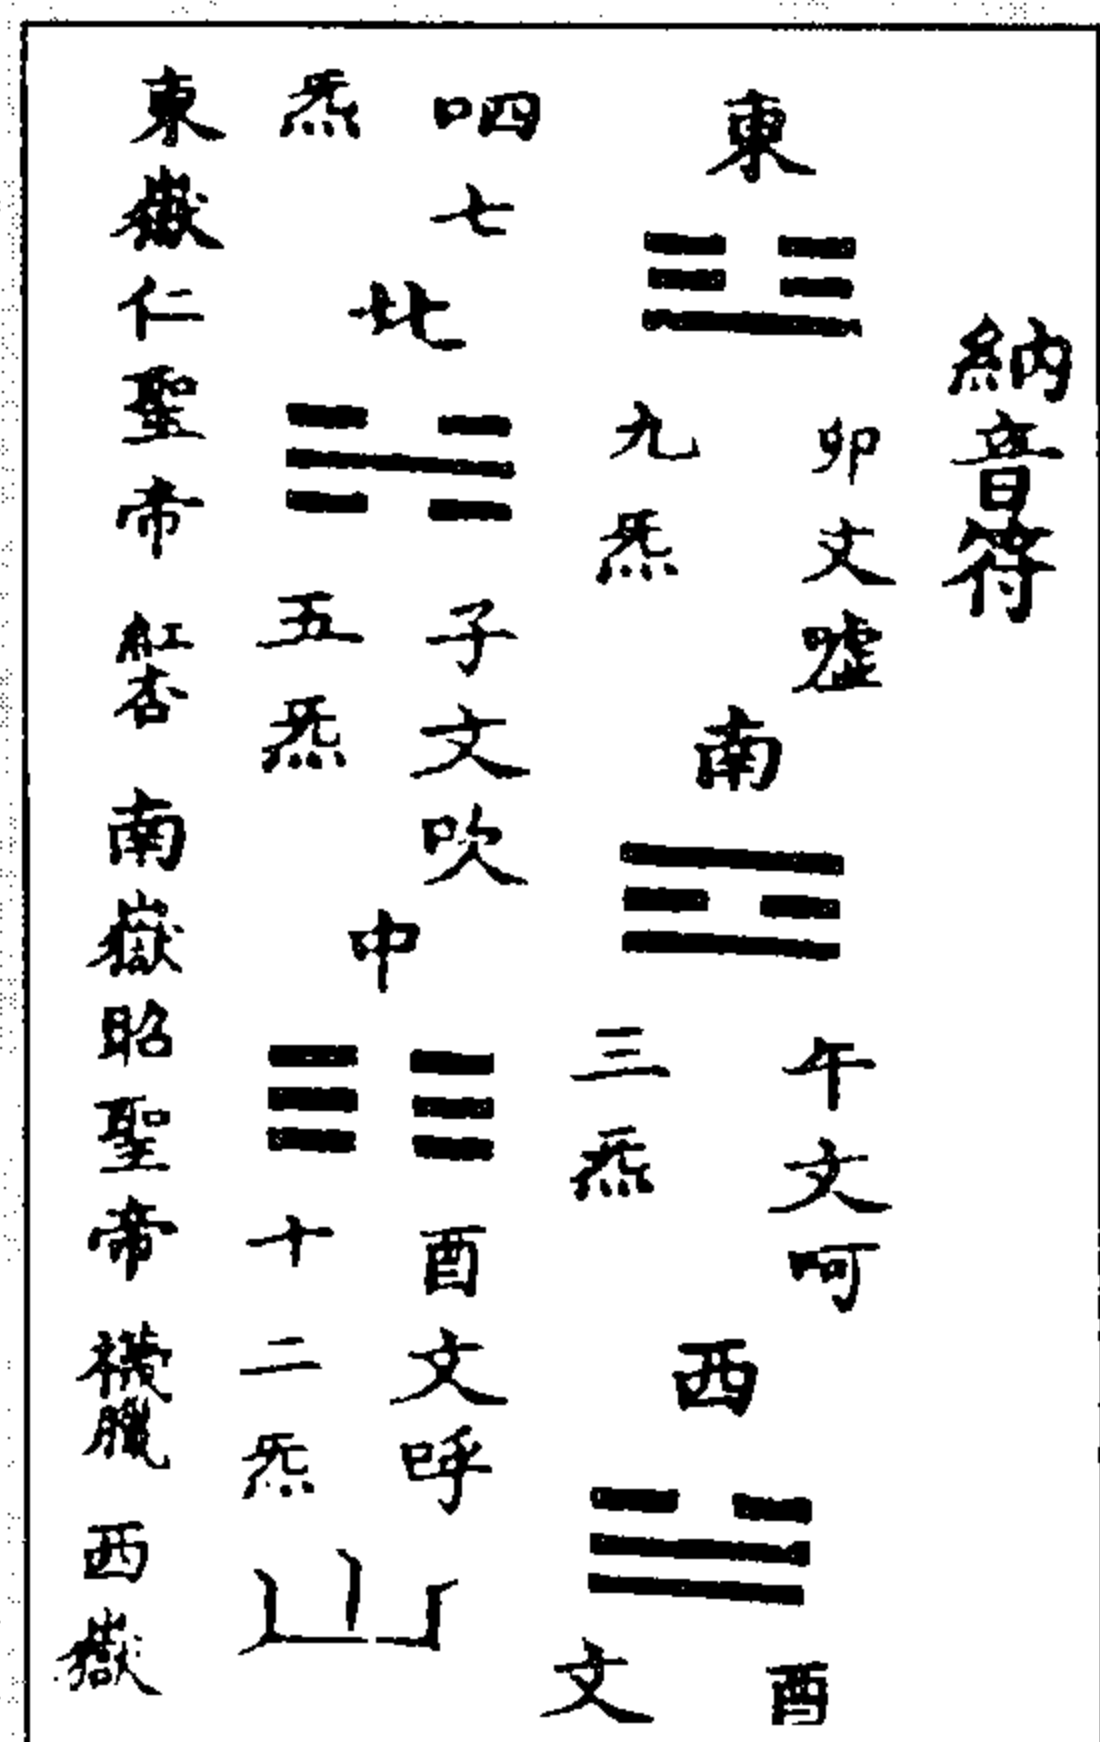 納音符
東
☳
卯文噓
九炁
南
☲
午文呵
三炁
西
☱
酉文
呬七
炁
北
☵
子文吹
五炁
中
☷
酉文呼
十二炁
東嶽仁聖帝 紅杏 南嶽昭聖帝 西嶽